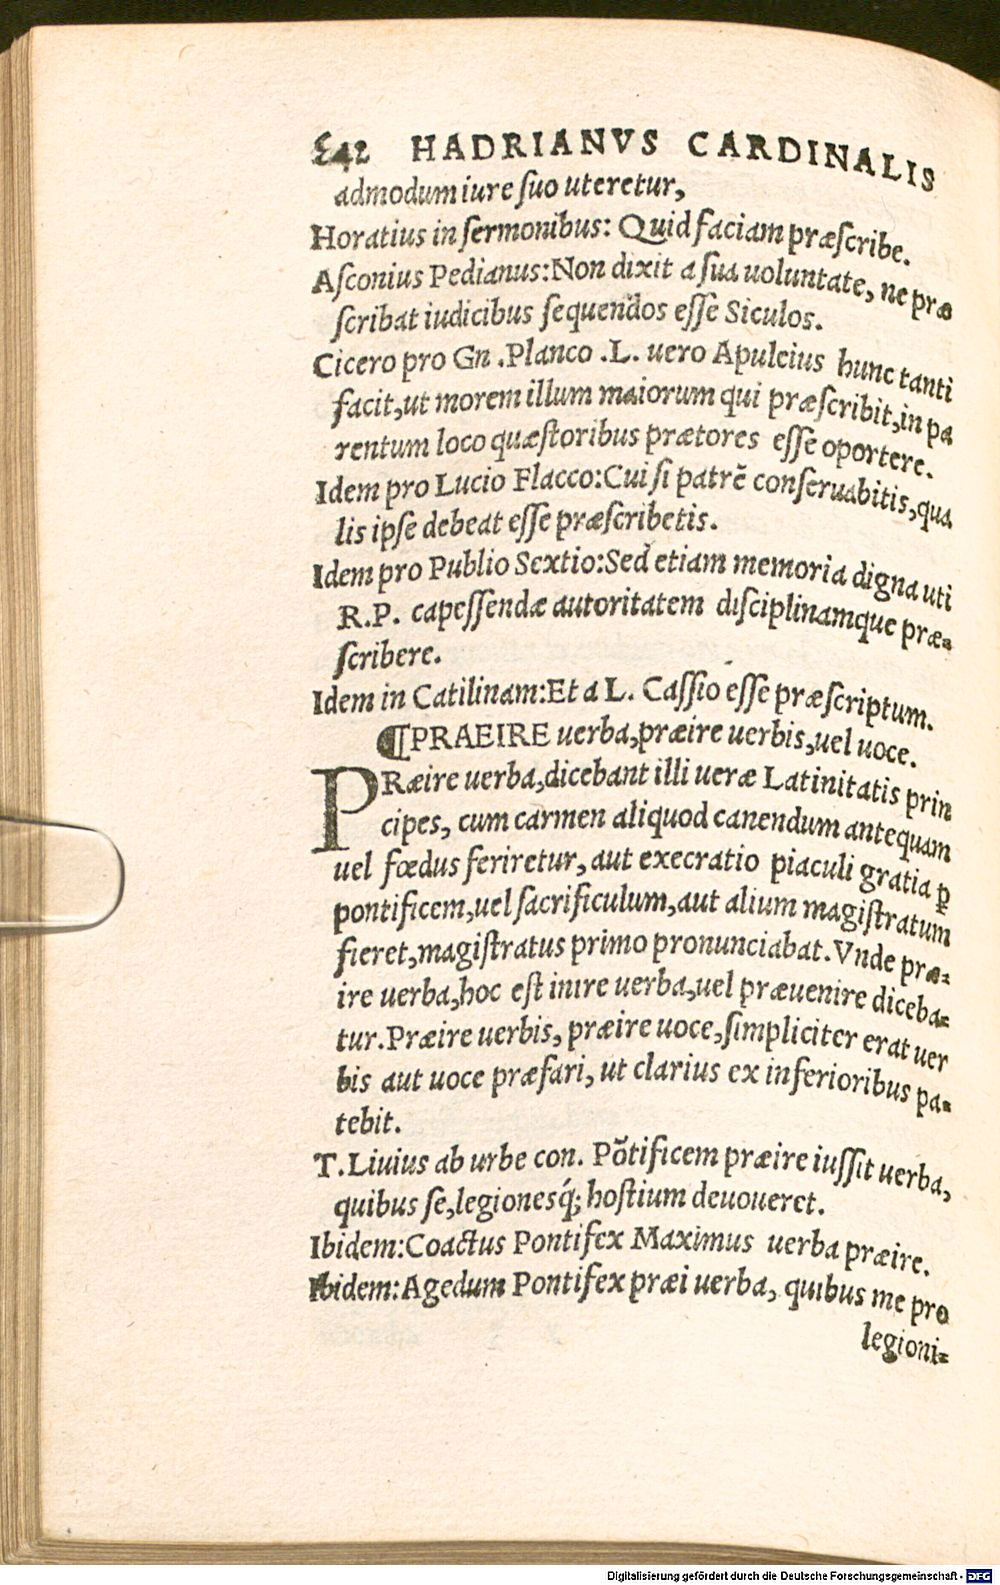 342 HADRIANVS CARDINALIS
admodum iure ſuo uteretur,
Horatius in ſermonibus: Quid faciam præſcribe.
Aſconius Pedianus: Non dixit a ſua uoluntate, ne præ
ſcribat iudicibus ſequendos eſſe Siculos.
Cicero pro Gn .Planco .L. uero Apuleius hunc tanti
facit, ut morem illum maiorum qui præſcribit, in pa
rentum loco quæſtoribus prætores eſſe oportere.
Idem pro Lucio Flacco: Cui ſi patrē conſeruabitis, qua
lis ipſe debeat eſſe præſcribetis.
Idem pro Publio Sextio: Sed etiam memoria digna uti
R.P. capeſſendæ autoritatem diſciplinamque præ-
ſcribere.
Idem in Catilinam: Et a L. Caſſio eſſe præſcriptum.
¶PRAEIRE uerba, præire uerbis, uel uoce.
PRæire uerba, dicebant illi ueræ Latinitatis prin
cipes, cum carmen aliquod canendum antequam
uel fœdus feriretur, aut execratio piaculi gratia ꝑ
pontificem, uel ſacrificulum, aut alium magiſtratum
fieret, magiſtratus primo pronunciabat. Vnde præ-
ire uerba, hoc eſt inire uerba, uel præuenire diceba-
tur. Præire uerbis, præire uoce, ſimpliciter erat uer
bis aut uoce præfari, ut clarius ex inferioribus pa-
tebit.
T. Liuius ab urbe con. Pōtificem præire iuſſit uerba,
quibus ſe, legionesq́; hoſtium deuoueret.
Ibidem: Coactus Pontifex Maximus uerba præire.
Ibidem: Agedum Pontifex præi uerba, quibus me pro
legioni-
Digitalisierung gefördert durch die Deutsche Forschungsgemeinschaft - DFG